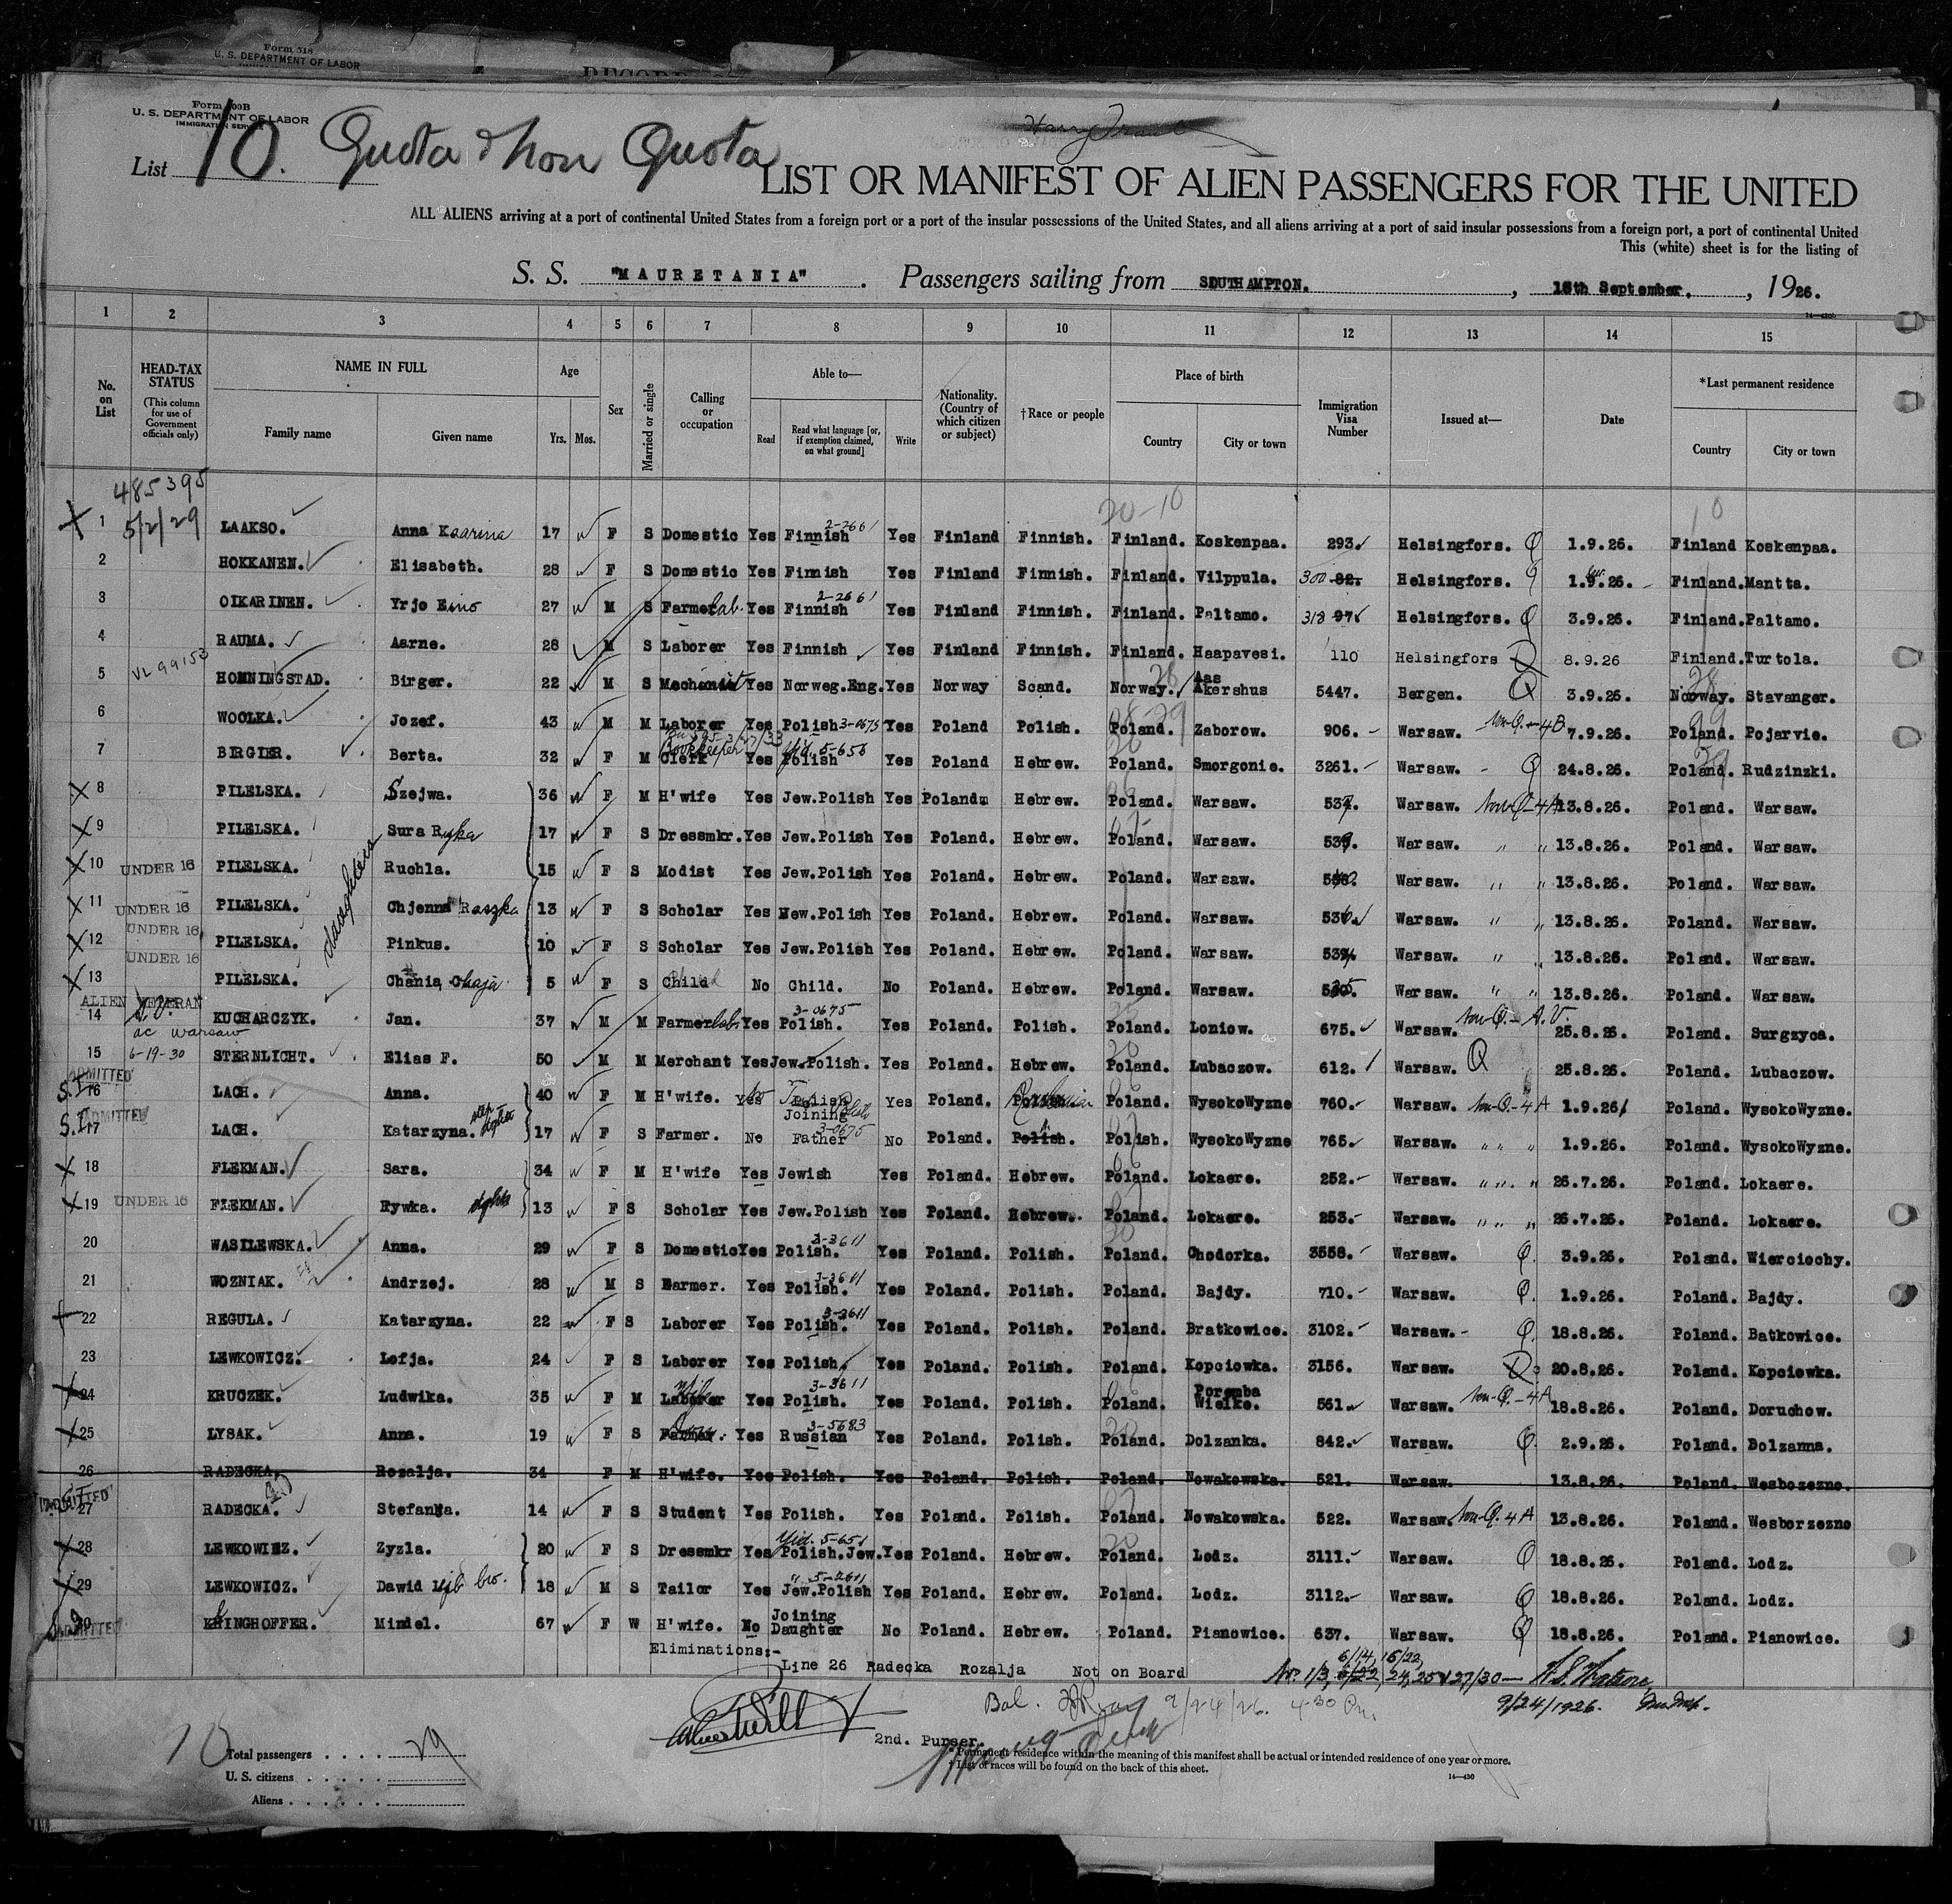 Form 518
U. S. DEPARTMENT OF LABOR
Form 500B
U. S. DEPARTMENT OF LABOR
IMMIGRATION SERVICE
List 10. Quota & Non Quota
LIST OR MANIFEST OF ALIEN PASSENGERS FOR THE UNITED
ALL ALIENS arriving at a port of continental United States from a foreign port or a port of the insular possessions of the United States, and all aliens arriving at a port of said insular possessions from a foreign port, a port of continental United
This (white) sheet is for the listing of
S. S. "MAURETANIA". Passengers sailing from SOUTHAMPTON. , 18th September. , 1926.
1 2 3 4 5 6 7 8 9 10 11 12 13 14 15
No. on List
HEAD-TAX STATUS
(This column for use of Government officials only)
NAME IN FULL
Family name Given name
Age
Yrs. Mos.
Sex
Married or single
Calling or occupation
Able to—
Read Read what language [or, if exemption claimed, on what ground] Write
Nationality. (Country of which citizen or subject)
†Race or people
Place of birth
Country City or town
Immigration Visa Number
Issued at—
Date
*Last permanent residence
Country City or town
485395
20-10
1 5/2/29 LAAKSO. Anna Kaarina 17 F S Domestic Yes Finnish 2-2661 Yes Finland Finnish. Finland. Koskenpaa. 293. Helsingfors. Q 1.9.26. Finland Koskenpaa.
2 HOKKANEN. Elisabeth. 28 F S Domestic Yes Finnish Yes Finland Finnish. Finland. Vilppula. 300 82. Helsingfors. Q 1.9.26. Finland. Mantta.
3 OIKARINEN. Yrjo Eino 27 M S Farmer Lab. Yes Finnish 2-2661 Yes Finland Finnish. Finland. Paltamo. 318 97. Helsingfors. Q 3.9.26. Finland. Paltamo.
4 RAUMA. Aarne. 28 M S Laborer Yes Finnish Yes Finland Finnish. Finland. Haapavesi. 110 Helsingfors Q 8.9.26 Finland. Turtola.
VL 99153
5 HONNINGSTAD. Birger. 22 M S Machinist Yes Norweg.Eng. Yes Norway Scand. Norway. Aas Akershus 5447. Bergen. Q 3.9.26. Norway. Stavanger.
6 WOOLKA. Jozef. 43 M M Laborer Yes Polish 3-0675 Yes Poland Polish. Poland. Zaborow. 906. Warsaw. Non-Q.-4B 7.9.26. Poland. Pojarvie.
7 BIRGIER. Berta. 32 F M Bookkeeper Clerk Yes Yid. 5-656 Polish Yes Poland Hebrew. Poland. Smorgonie. 3261. Warsaw. Q 24.8.26. Poland. Rudzinzki.
8 PILELSKA. Szejwa. 36 F M H'wife Yes Jew.Polish Yes Poland Hebrew. Poland. Warsaw. Warsaw. Non-Q-4A 13.8.26. Poland. Warsaw.
9 PILELSKA. Sura Ryka 17 F S Dressmkr. Yes Jew.Polish Yes Poland. Hebrew. Poland. Warsaw. Warsaw. " " 13.8.26. Poland. Warsaw.
10 UNDER 16 PILELSKA. Ruchla. 15 F S Modist Yes Jew.Polish Yes Poland. Hebrew. Poland. Warsaw. Warsaw. " " 13.8.26. Poland. Warsaw.
daughters
11 UNDER 16 PILELSKA. Chjenna Raszka 13 F S Scholar Yes Jew.Polish Yes Poland. Hebrew. Poland. Warsaw. Warsaw. " " 13.8.26. Poland. Warsaw.
12 UNDER 16 PILELSKA. Pinkus. 10 F S Scholar Yes Jew.Polish Yes Poland. Hebrew. Poland. Warsaw. Warsaw. " " 13.8.26. Poland. Warsaw.
13 UNDER 16 PILELSKA. Chania Chaja 5 F S Child No Child. No Poland. Hebrew. Poland. Warsaw. Warsaw. " " 13.8.26. Poland. Warsaw.
ALIEN VETERAN
14 KUCHARCZYK. Jan. 37 M M Farmer lab. Yes Polish. 3-0675 Yes Poland. Polish. Poland. Loniow. 675. Warsaw. Non-Q.-A.V. 25.8.26. Poland. Surgzyca.
ac Warsaw
15 6-19-30 STERNLICHT. Elias F. 50 M M Merchant Yes Jew.Polish. Yes Poland. Hebrew. Poland. Lubaczow. 612. Warsaw. Q 25.8.26. Poland. Lubaczow.
ADMITTED
S.I. 16 LACH. Anna. 40 F M H'wife. Yes Polish Yes Poland. Ruthenian Poland. WysokoWyzne 760. Warsaw. Non-Q-4A 1.9.26. Poland. WysokoWyzne.
ADMITTED
S.I. 17 LACH. Katarzyna. step dghter 17 F S Farmer. No Joining Father 3-0675 No Poland. Polish. Polish. WysokoWyzne 765. Warsaw. " " " 1.9.26. Poland. WysokoWyzne.
18 FLEKMAN. Sara. 34 F M H'wife Yes Jewish Yes Poland. Hebrew. Poland. Lokaere. 252. Warsaw. " " " 26.7.26. Poland. Lokaere.
19 UNDER 16 FLEKMAN. Rywka. dghter 13 F S Scholar Yes Jew.Polish Yes Poland. Hebrew. Poland. Lokaere. 253. Warsaw. " " " 26.7.26. Poland. Lokaere.
20 WASILEWSKA. Anna. 29 F S Domestic Yes Polish. 3-3611 Yes Poland. Polish. Poland. Chodorka. 3558. Warsaw. Q. 3.9.26. Poland. Wierciochy.
21 WOZNIAK. Andrzej. 28 M S Farmer. Yes Polish. 3-3611 Yes Poland. Polish. Poland. Bajdy. 710. Warsaw. Q. 1.9.26. Poland. Bajdy.
22 REGULA. Katarzyna. 22 F S Laborer Yes Polish. 3-3611 Yes Poland. Polish. Poland. Bratkowice. 3102. Warsaw. Q. 18.8.26. Poland. Batkowice.
23 LEWKOWICZ. Lofja. 24 F S Laborer Yes Polish. Yes Poland. Polish. Poland. Kopciowka. 3156. Warsaw. Q 20.8.26. Poland. Kopciowka.
24 KRUCZEK. Ludwika. 35 F M Laborer wife Yes Polish. 3-3611 Yes Poland. Polish. Poland. Poremba Wielke. 561. Warsaw. Non-Q.-4A 18.8.26. Poland. Doruchow.
25 LYSAK. Anna. 19 F S Farmer. Dom Yes Russian 3-5683 Yes Poland. Polish. Poland. Dolzanka. 842. Warsaw. Q. 2.9.26. Poland. Dolzanna.
26 RADECKA. Rozalja. 34 F M H'wife. Yes Polish. Yes Poland. Polish. Poland. Nowakowska. 521. Warsaw. 13.8.26. Poland. Wesbozezno.
ADMITTED
27 RADECKA. Stefanya. 14 F S Student Yes Polish. Yes Poland. Polish. Poland. Nowakowska. 522. Warsaw. Non-Q.4A 13.8.26. Poland. Wesborzezno
28 LEWKOWIEZ. Zyzla. 20 F S Dressmkr Yes Yid. 5-651 Polish.Jew. Yes Poland. Hebrew. Poland. Lodz. 3111. Warsaw. Q 18.8.26. Poland. Lodz.
29 LEWKOWICZ. Dawid bro. 18 M S Tailor Yes Jew.Polish Yes Poland. Hebrew. Poland. Lodz. 3112. Warsaw. Q 18.8.26. Poland. Lodz.
30 ADMITTED KLINGHOFFER. Mindel. 67 F W H'wife. No Joining Daughter No Poland. Hebrew. Poland. Pianowice. 637. Warsaw. Q 18.8.26. Poland. Pianowice.
Eliminations:-
Line 26 Radecka Rozalja Not on Board
6/14, 16/22,
Nos. 1/3, 24, 25 & 27/30 —
9/24/1926.
Bal. 9/24/26. 4-30 Pm.
2nd. Purser.
10
Total passengers . . . . 29
U. S. citizens . . . . .
Aliens . . . . . .
* Permanent residence within the meaning of this manifest shall be actual or intended residence of one year or more.
† List of races will be found on the back of this sheet.
14—430